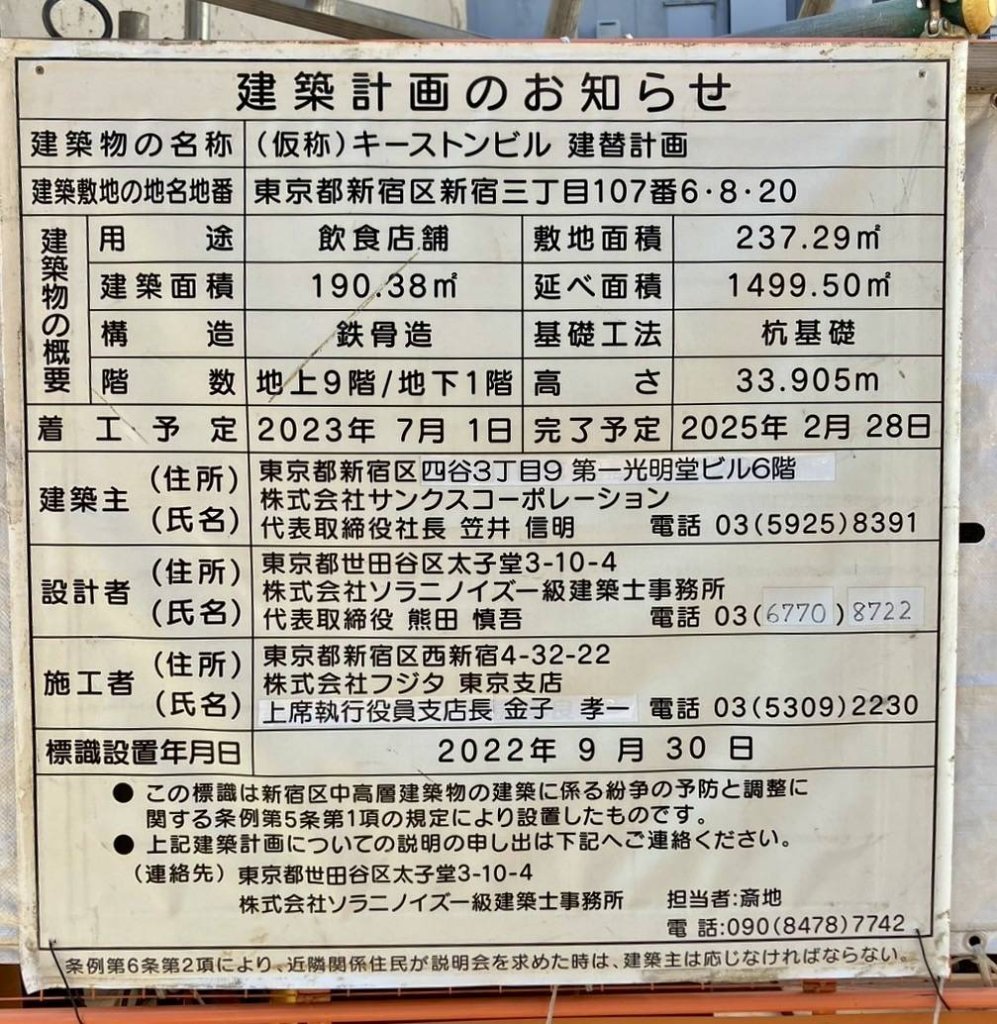 建築計画のお知らせ
建築物の名称 (仮称)キーストンビル 建替計画
建築敷地の地名地番 東京都新宿区新宿三丁目107番6・8・20
建築物の概要
用途 飲食店舗 敷地面積 237.29㎡
建築面積 190.38㎡ 延べ面積 1499.50㎡
構造 鉄骨造 基礎工法 杭基礎
階数 地上9階/地下1階 高さ 33.905m
着工予定 2023年 7月 1日 完了予定 2025年 2月 28日
建築主 (住所) 東京都新宿区四谷3丁目9 第一光明堂ビル6階
株式会社サンクスコーポレーション
(氏名) 代表取締役社長 笠井 信明 電話 03(5925)8391
設計者 (住所) 東京都世田谷区太子堂3-10-4
株式会社ソラニノイズ一級建築士事務所
(氏名) 代表取締役 熊田 慎吾 電話 03(6770)8722
施工者 (住所) 東京都新宿区西新宿4-32-22
株式会社フジタ 東京支店
(氏名) 上席執行役員支店長 金子 孝一 電話 03(5309)2230
標識設置年月日 2022年 9 月 30 日
● この標識は新宿区中高層建築物の建築に係る紛争の予防と調整に
関する条例第5条第1項の規定により設置したものです。
● 上記建築計画についての説明の申し出は下記へご連絡ください。
(連絡先) 東京都世田谷区太子堂3-10-4
株式会社ソラニノイズ一級建築士事務所 担当者:斎地
電 話:090(8478)7742
条例第6条第2項により、近隣関係住民が説明会を求めた時は、建築主は応じなければならない。